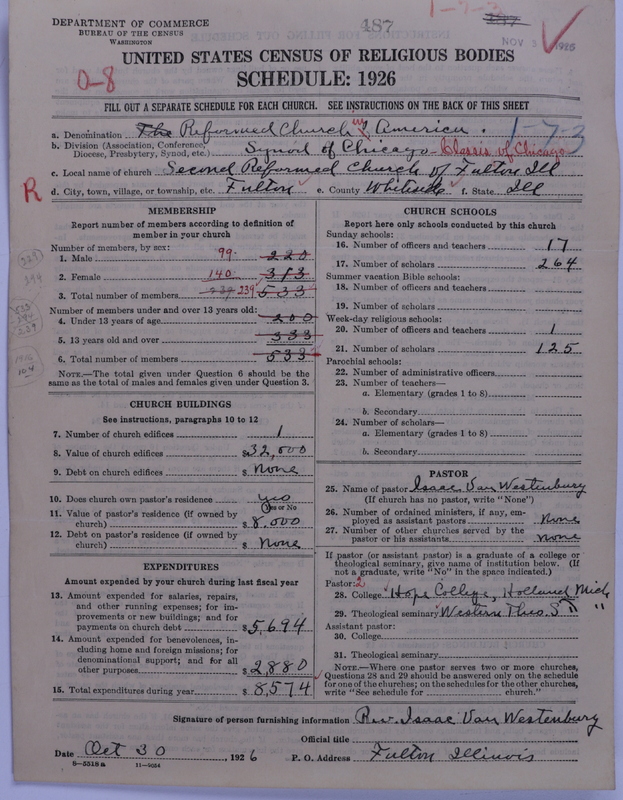 DEPARTMENT OF COMMERCE
BUREAU OF THE CENSUS
WASHINGTON
487
1-7-3
NOV 3 1926
UNITED STATES CENSUS OF RELIGIOUS BODIES
SCHEDULE: 1926
0-8
FILL OUT A SEPARATE SCHEDULE FOR EACH CHURCH. SEE INSTRUCTIONS ON THE BACK OF THIS SHEET
a. Denomination The Reformed Church in America. 1-7-3
b. Division (Association, Conference, Diocese, Presbytery, Synod, etc.) Synod of Chicago - Classis of Chicago
c. Local name of church Second Reformed Church of Fulton Ill
R
d. City, town, village, or township, etc. Fulton e. County Whiteside f. State Ill
MEMBERSHIP
Report number of members according to definition of member in your church
Number of members, by sex:
1. Male 99 220
2. Female 140 313
3. Total number of members 239 239 533
Number of members under and over 13 years old:
4. Under 13 years of age 200
5. 13 years old and over 333
6. Total number of members 533
NOTE.—The total given under Question 6 should be the same as the total of males and females given under Question 3.
CHURCH BUILDINGS
See instructions, paragraphs 10 to 12
7. Number of church edifices 1
8. Value of church edifices $32,000
9. Debt on church edifices $ None
10. Does church own pastor's residence yes
Yes or No
11. Value of pastor's residence (if owned by church) $ 8,000
12. Debt on pastor's residence (if owned by church) $ None
EXPENDITURES
Amount expended by your church during last fiscal year
13. Amount expended for salaries, repairs, and other running expenses; for improvements or new buildings; and for payments on church debt $5,694
14. Amount expended for benevolences, including home and foreign missions; for denominational support; and for all other purposes $2880
15. Total expenditures during year $8,574
CHURCH SCHOOLS
Report here only schools conducted by this church
Sunday schools:
16. Number of officers and teachers 17
17. Number of scholars 264
Summer vacation Bible schools:
18. Number of officers and teachers
19. Number of scholars
Week-day religious schools:
20. Number of officers and teachers 1
21. Number of scholars 125
Parochial schools:
22. Number of administrative officers
23. Number of teachers—
a. Elementary (grades 1 to 8)
b. Secondary
24. Number of scholars—
a. Elementary (grades 1 to 8)
b. Secondary
PASTOR
25. Name of pastor Isaac Van Westenburg
(If church has no pastor, write "None")
26. Number of ordained ministers, if any, employed as assistant pastors None
27. Number of other churches served by the pastor or his assistants None
If pastor (or assistant pastor) is a graduate of a college or theological seminary, give name of institution below. (If not a graduate, write "No" in the space indicated.)
Pastor: 2
28. College Hope College, Holland Mich
29. Theological seminary Western Theo. S " "
Assistant pastor:
30. College
31. Theological seminary
NOTE.—Where one pastor serves two or more churches, Questions 28 and 29 should be answered only on the schedule for one of the churches; on the schedules for the other churches, write "See schedule for church."
Signature of person furnishing information Rev. Isaac Van Westenburg
Official title
Date Oct 30, 1926 P. O. Address Fulton Illinois
8-5518a 11-9024